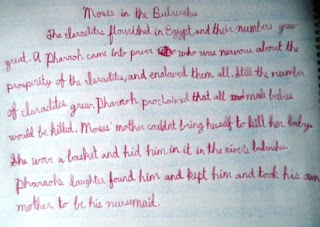 Moses in the Bulrushes
The Israelites flourished in Egypt, and their numbers grew
great. A Pharaoh came into power who was nervous about the
prosperity of the Israelites, and enslaved them all. Still the number
of Israelites grew. Pharaoh proclaimed that all male babies
would be killed. Moses' mother couldn't bring herself to kill her baby.
She wove a basket and hid him in it in the river's bulrushes.
Pharaoh's daughter found him and kept him and took his own
mother to be his nursemaid.